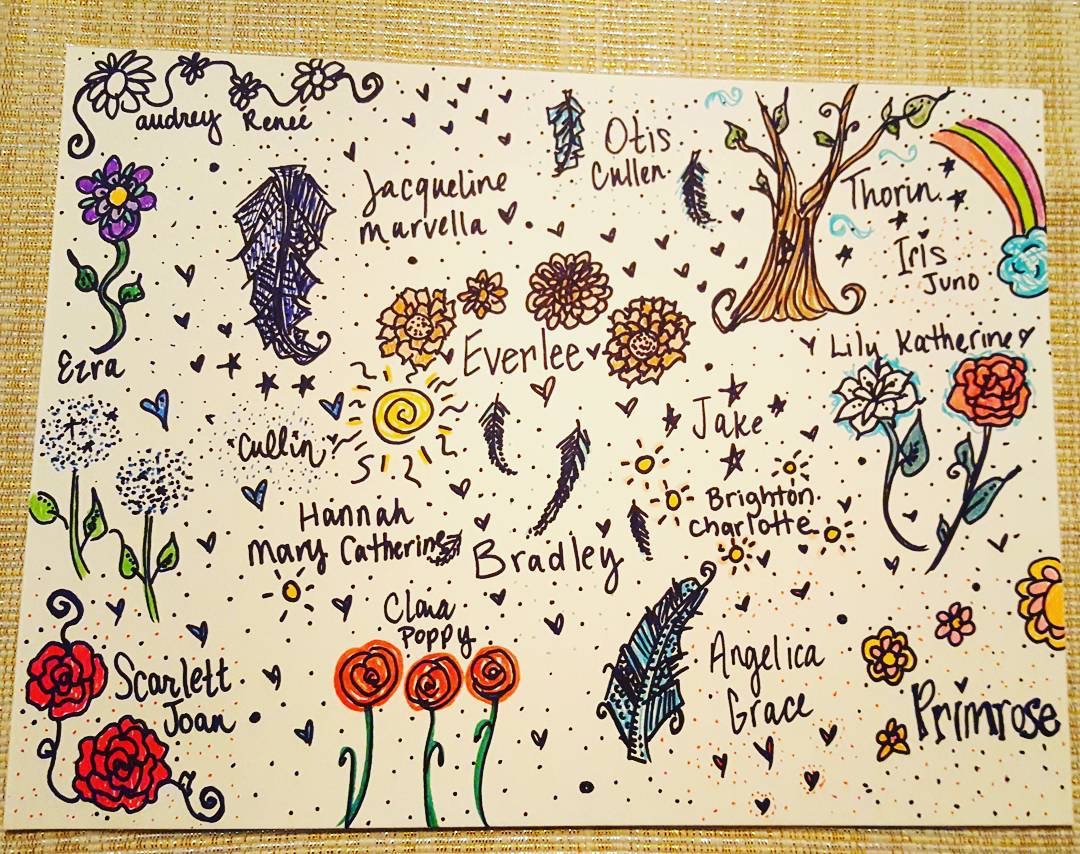 audrey Reneé
Otis
Cullen
Jacqueline
marvella
Thorin
Iris
Juno
Everlee
Lily Katherine
Ezra
Jake
Cullin
Brighton
Charlotte
Hannah
Mary Catherine
Bradley
Clara
Poppy
Scarlett
Joan
Angelica
Grace
Primrose